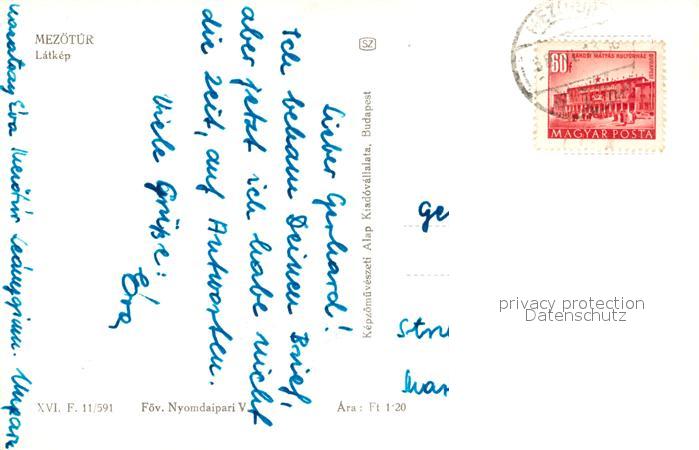 MEZŐTÚR
Látkép
SZ
Lieber Gerhard!
Ich bekam Deinen Brief,
aber jetzt ich habe nicht
die Zeit, auf Antworten.
Viele Grüße:
Éva
Éva Mezőtúr Leánygimn.
Képzőművészeti Alap Kiadóvállalata, Budapest
XVI. F. 11/591
Föv. Nyomdaipari V
Ára: Ft 1·20
60f
RÁKOSI MÁTYÁS KULTÚRHÁZ
BUDAPEST
MAGYAR POSTA
Ge
Str
privacy protection
Datenschutz